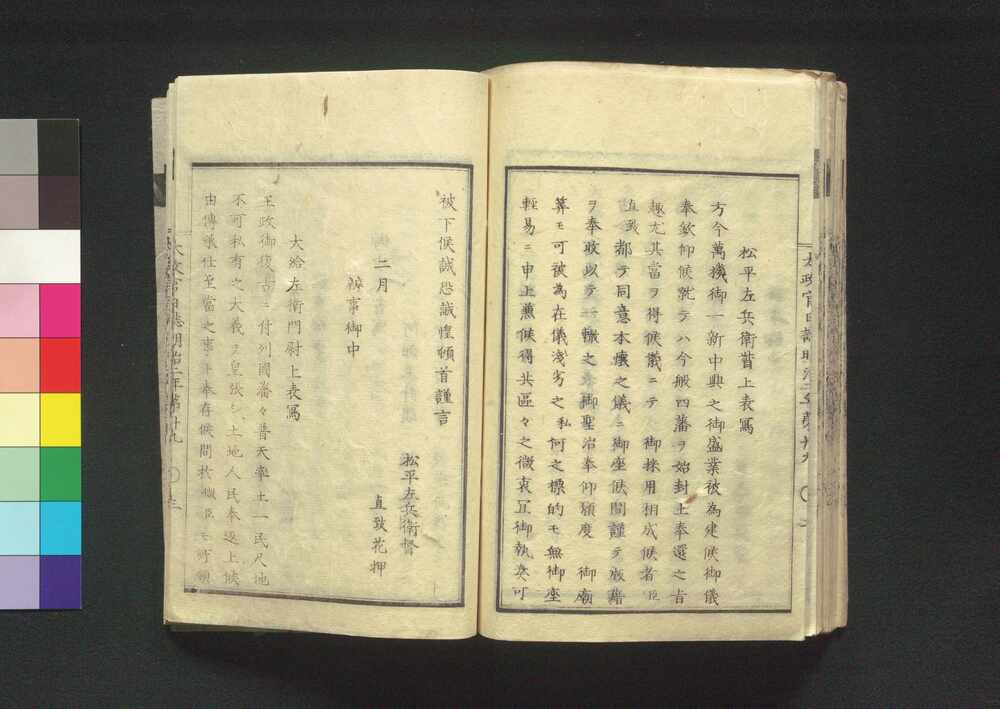 松平左兵衛督上表寫
方今萬機御一新中興之御盛業被為建候御儀
奉欽仰候就テハ今般四藩ヲ始封土奉還之旨
趣尤其當ヲ得候儀ニテ 御採用相成候者臣
直致都テ同意本壞之儀ニ御座候間謹テ版籍
ヲ奉收以テ一轍之御聖治奉仰願度 御廟
算モ可被為在儀淺劣之私何之標的モ無御座
輕易ニ申上兼候得共區々之微衷冝御執奏可
被下候誠恐誠惶頓首謹言
松平左兵衛督
二月 直致花押
辨事御中
大給左衛門尉上表寫
王政御復古ニ付列國藩々普天率土一民尺地
不可私有之大義ヲ皇張シ土地人民奉返上候
由傳議仕至當之事ト奉存候間於微臣モ所領
太政官日誌明治二年第廿九